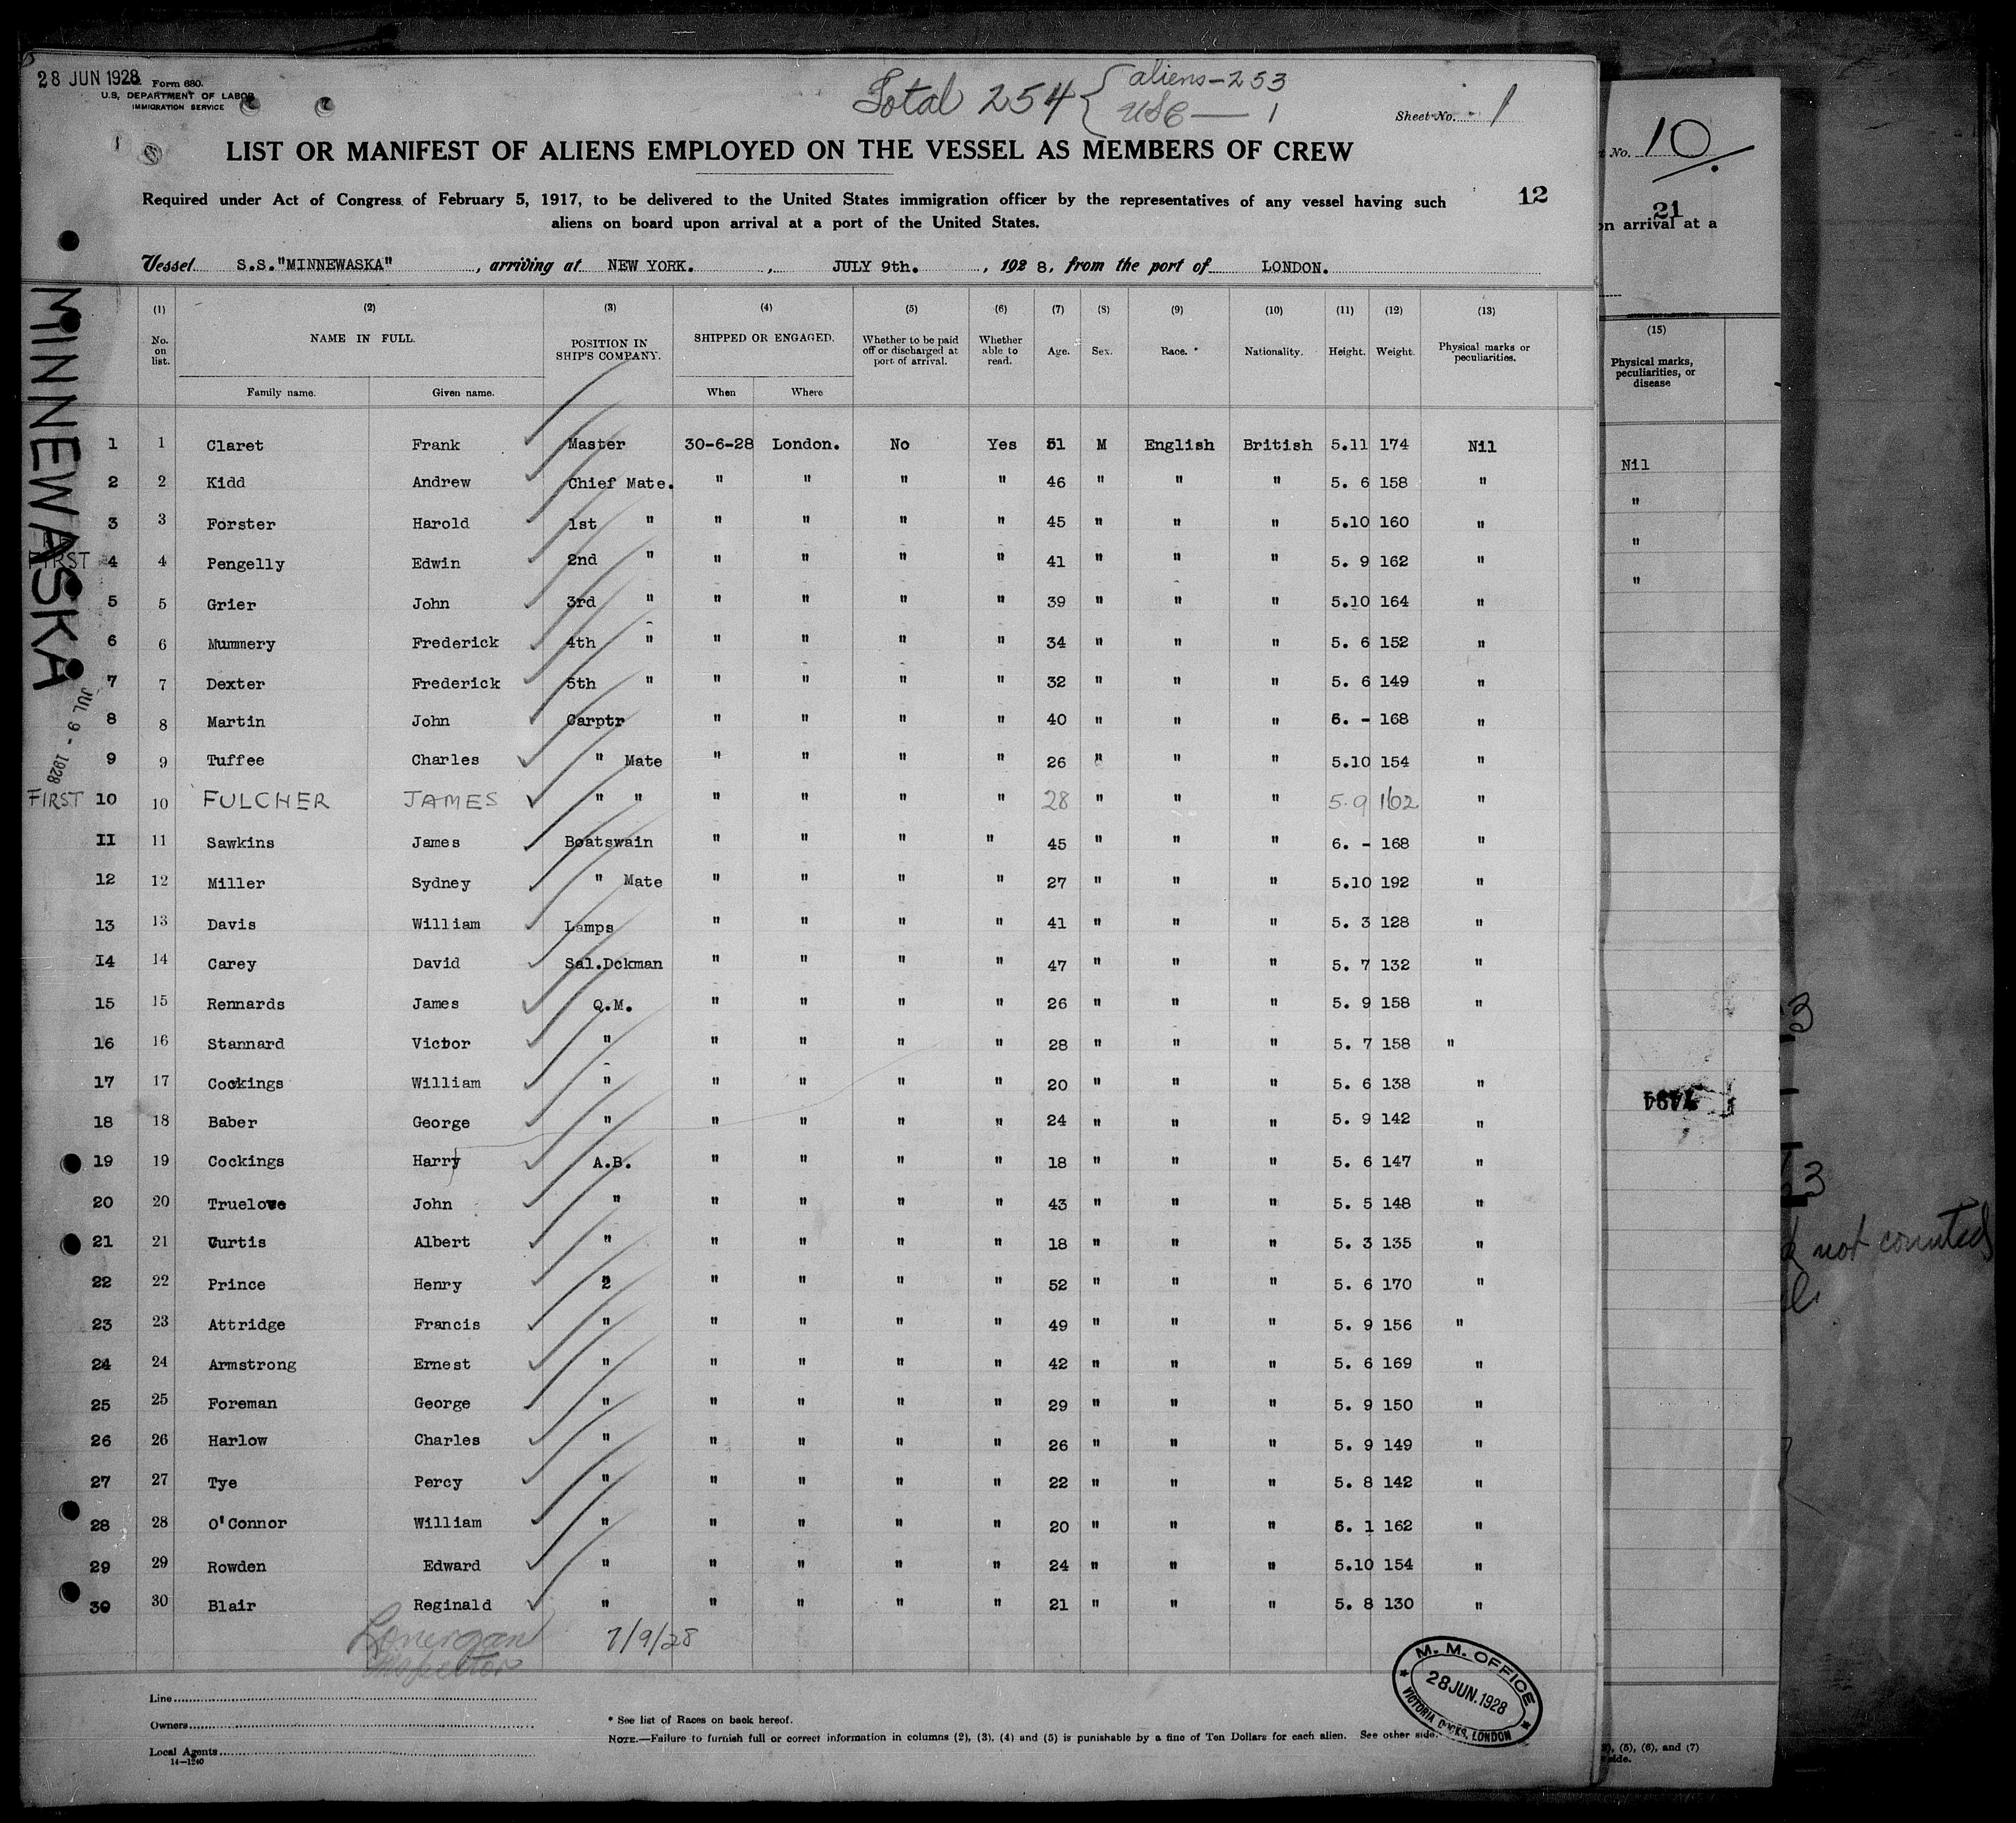 28 JUN 1928
Form 680.
U.S. DEPARTMENT OF LABOR
IMMIGRATION SERVICE
Total 254 { aliens-253
USC — 1
Sheet No. 1
LIST OR MANIFEST OF ALIENS EMPLOYED ON THE VESSEL AS MEMBERS OF CREW
Required under Act of Congress of February 5, 1917, to be delivered to the United States immigration officer by the representatives of any vessel having such
aliens on board upon arrival at a port of the United States.
12
Vessel S.S."MINNEWASKA", arriving at NEW YORK., JULY 9th., 1928, from the port of LONDON.
(1) (2) (3) (4) (5) (6) (7) (8) (9) (10) (11) (12) (13)
No. on list. NAME IN FULL. POSITION IN SHIP'S COMPANY. SHIPPED OR ENGAGED. Whether to be paid off or discharged at port of arrival. Whether able to read. Age. Sex. Race.* Nationality. Height. Weight. Physical marks or peculiarities.
Family name. Given name. When Where
1 1 Claret Frank Master 30-6-28 London. No Yes 51 M English British 5.11 174 Nil
2 2 Kidd Andrew Chief Mate. " " " " 46 " " " 5. 6 158 "
3 3 Forster Harold 1st " " " " " 45 " " " 5.10 160 "
FIRST 4 4 Pengelly Edwin 2nd " " " " " 41 " " " 5. 9 162 "
5 5 Grier John 3rd " " " " " 39 " " " 5.10 164 "
6 6 Mummery Frederick 4th " " " " " 34 " " " 5. 6 152 "
7 7 Dexter Frederick 5th " " " " " 32 " " " 5. 6 149 "
8 8 Martin John Carptr " " " " 40 " " " 6. - 168 "
9 9 Tuffee Charles " Mate " " " " 26 " " " 5.10 154 "
FIRST 10 10 FULCHER JAMES " " " " " " 28 " " " 5.9 162 "
11 11 Sawkins James Boatswain " " " " 45 " " " 6. - 168 "
12 12 Miller Sydney " Mate " " " " 27 " " " 5.10 192 "
13 13 Davis William Lamps " " " " 41 " " " 5. 3 128 "
14 14 Carey David Sal.Dckman " " " " 47 " " " 5. 7 132 "
15 15 Rennards James Q.M. " " " " 26 " " " 5. 9 158 "
16 16 Stannard Victor " " " " " 28 " " " 5. 7 158 "
17 17 Cockings William " " " " " 20 " " " 5. 6 138 "
18 18 Baber George " " " " " 24 " " " 5. 9 142 "
19 19 Cockings Harry A.B. " " " " 18 " " " 5. 6 147 "
20 20 Truelove John " " " " " 43 " " " 5. 5 148 "
21 21 Curtis Albert " " " " " 18 " " " 5. 3 135 "
22 22 Prince Henry 2 " " " " 52 " " " 5. 6 170 "
23 23 Attridge Francis " " " " " 49 " " " 5. 9 156 "
24 24 Armstrong Ernest " " " " " 42 " " " 5. 6 169 "
25 25 Foreman George " " " " " 29 " " " 5. 9 150 "
26 26 Harlow Charles " " " " " 26 " " " 5. 9 149 "
27 27 Tye Percy " " " " " 22 " " " 5. 8 142 "
28 28 O'Connor William " " " " " 20 " " " 6. 1 162 "
29 29 Rowden Edward " " " " " 24 " " " 5.10 154 "
30 30 Blair Reginald " " " " " 21 " " " 5. 8 130 "
Lonergan 7/9/28
Inspector
Line
Owners
Local Agents
14—1240
* See list of Races on back hereof.
NOTE.—Failure to furnish full or correct information in columns (2), (3), (4) and (5) is punishable by a fine of Ten Dollars for each alien. See other side.
M. M. OFFICE
28 JUN. 1928
VICTORIA DOCKS, LONDON
MINNEWASKA
JUL 9 - 1928
No. 10
21
on arrival at a
(15)
Physical marks,
peculiarities, or
disease
Nil
"
"
"
3
3
not counted
(5), (6), and (7)
side.